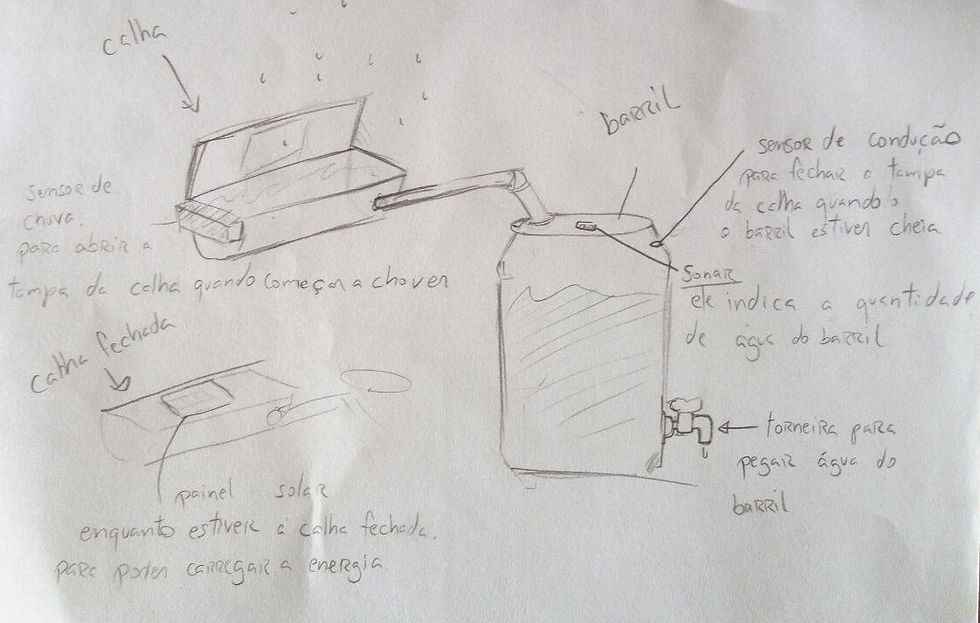 calha
barril
sensor de condução
para fechar a tampa
da calha quando o
o barril estiver cheia
sensor de
chuva.
para abrir a
tampa da calha quando começar a chover
sonar
ele indica a quantidade
de água do barril
calha fechada
torneira para
pegar água do
barril
painel solar
enquanto estiver a calha fechada.
para poder carregar a energia